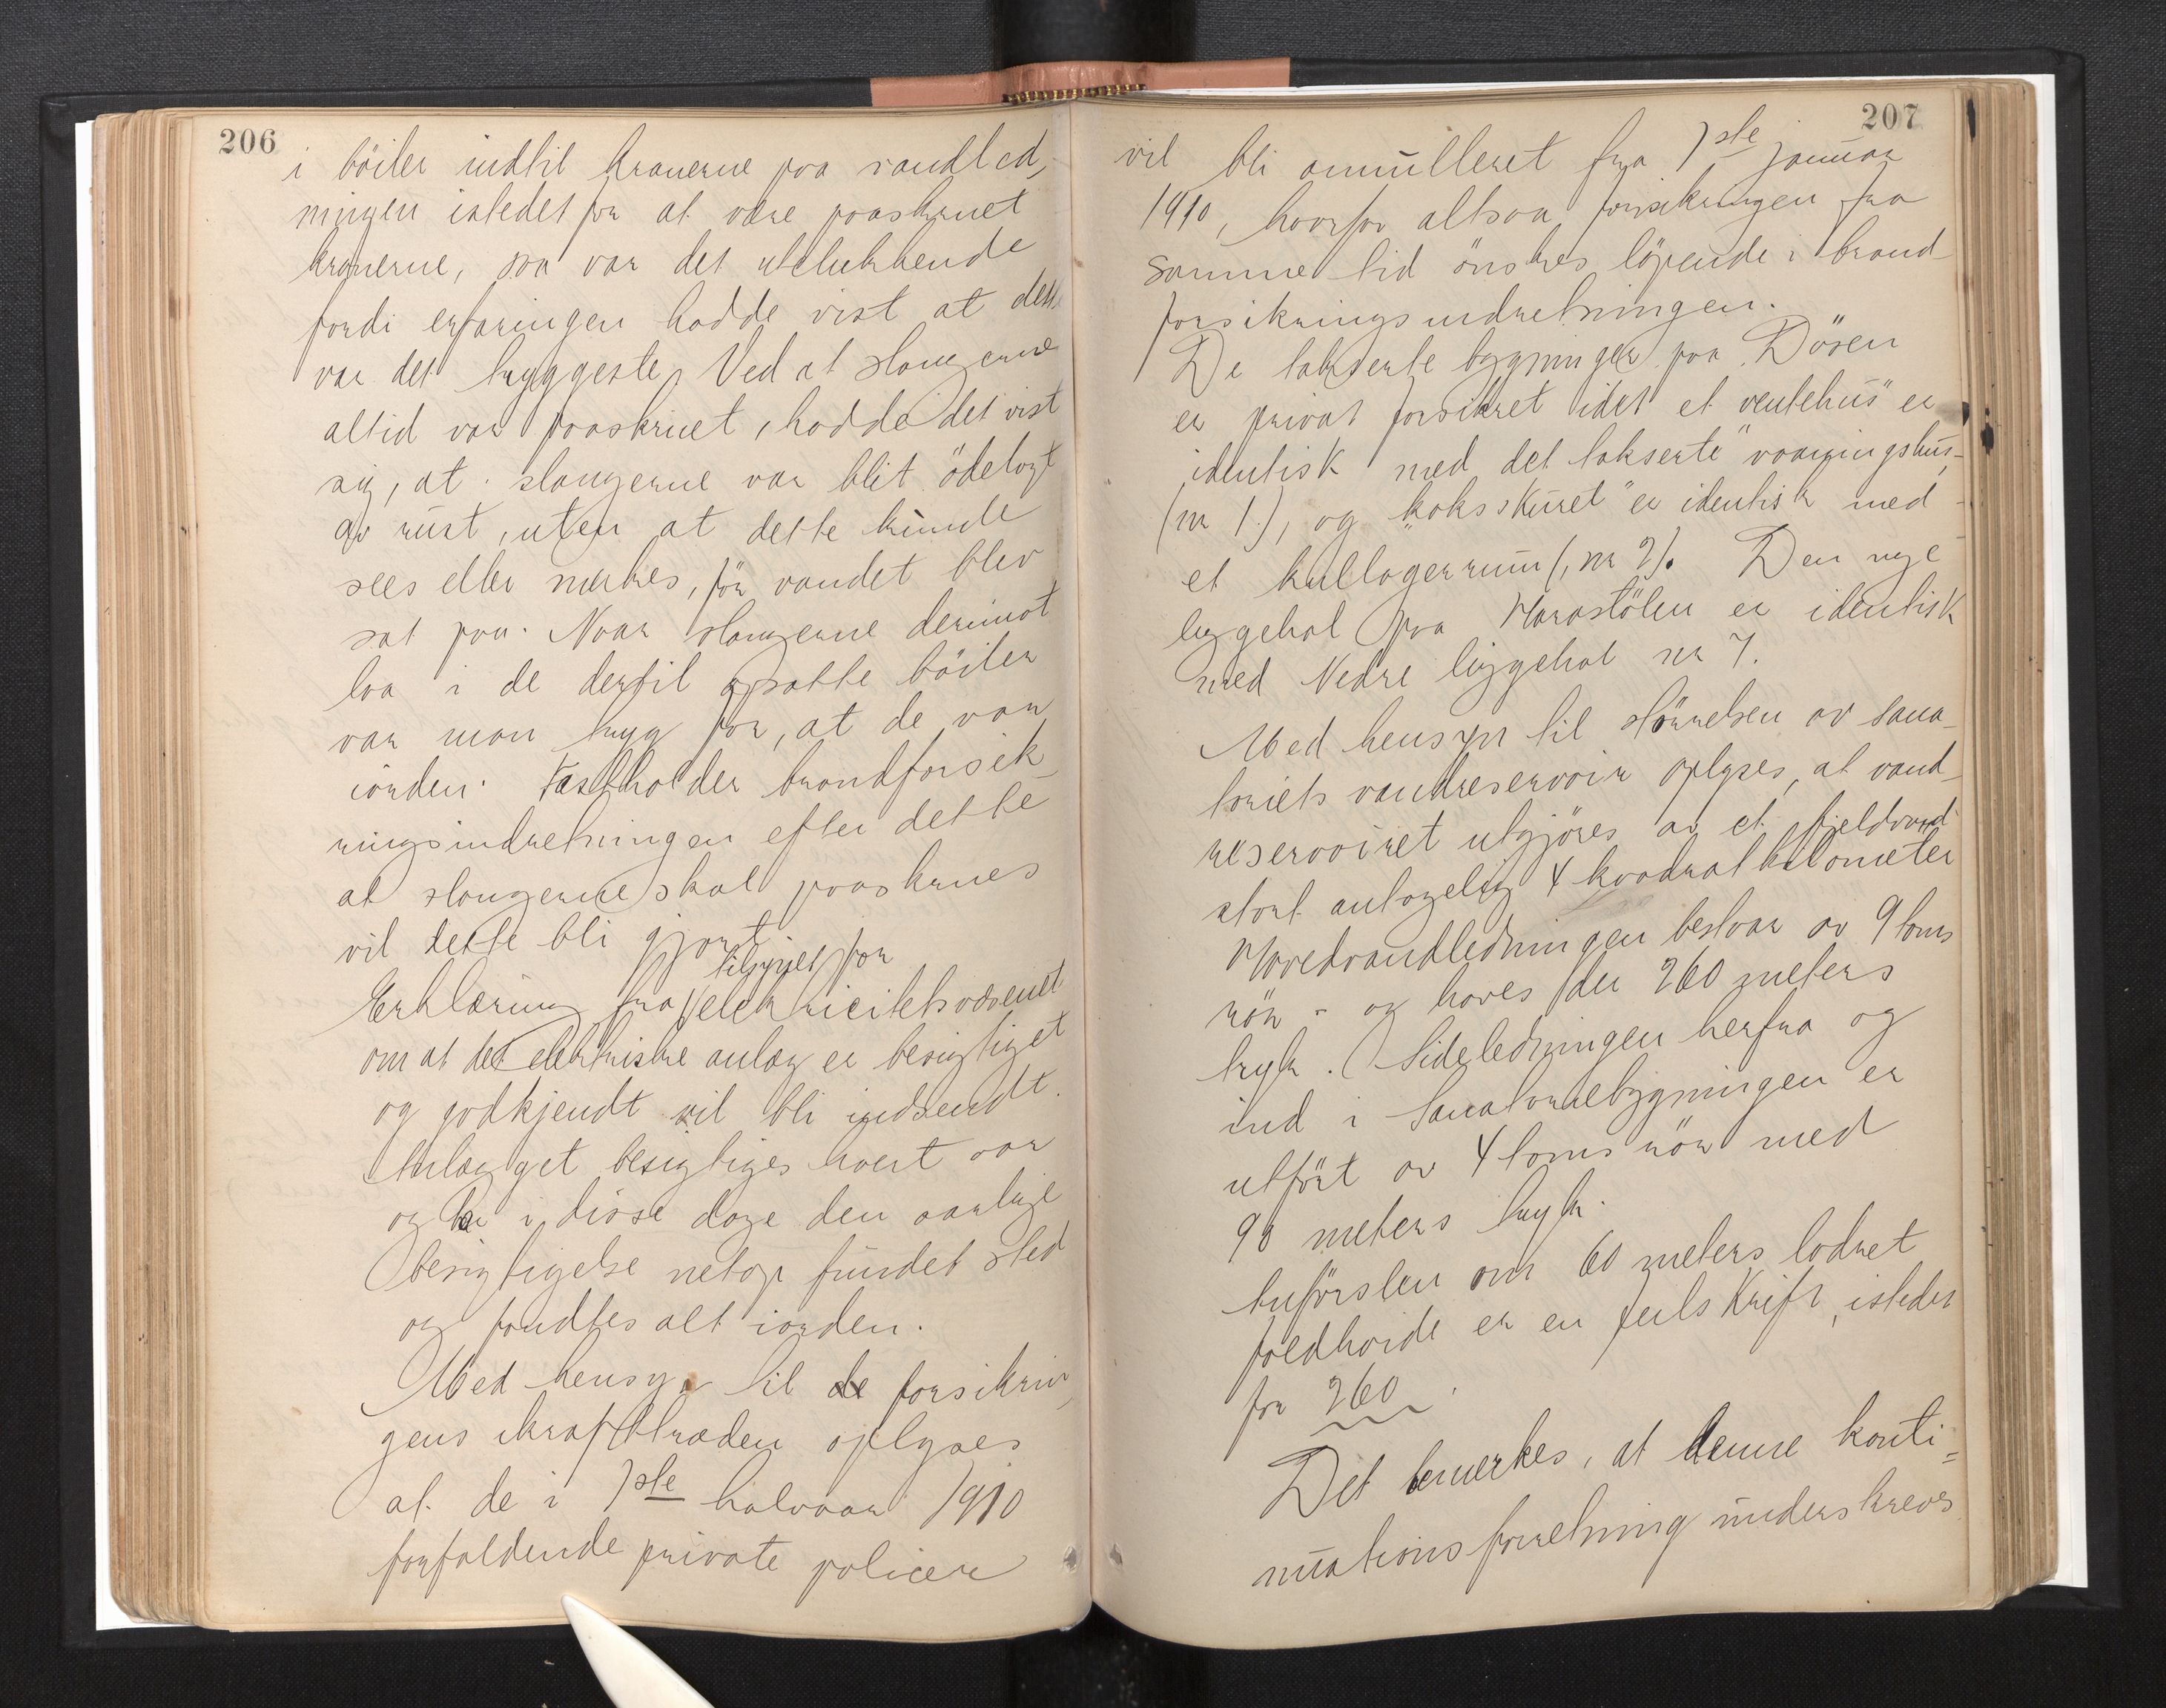 206
i böiler indtil kranerne paa vandled-
ningen istedet for at være paaskruet
kranerne, saa var det utelukkende
fordi erfaringen hadde vist at dette
var det tryggeste. Ved at slangerne
altid var paaskruet, hadde det vist
sig, at slangerne var blit ödelagt
av rust, uten at dette kunde
sees eller merkes, för vandet blev
sat paa. Naar slangerne derimot
laa i de dertil opsatte böiler
var man tryg for, at de var
iorden. Fastholder brandforsik-
ringsindretningen efter dette
at slangerne skal paaskrues
vil dette bli gjort.
tilsynet for
Erklæring fra elektricitetsvæsenet
om at det elektriske anlæg er besigtiget
og godkjendt vil bli indsendt.
Anlægget besigtiges hvert aar
og har i disse dage den aarlige
besigtigelse netop fundet sted
og fandtes alt iorden.
Med hensyn til de forsikrin-
gens ikrafttræden oplyses
at de i 1ste halvaar 1910
forfaldende private policer
207
vil bli annulleret fra 1ste januar
1910, hvorfor altsaa forsikringen fra
samme tid önskes löpende i brand-
forsikringsindretningen.
De takserte bygninger paa Dösen
er privat forsikret idet et "ventehus" er
identisk med det takserte "vaaningshus"
(nr 1), og "koksskuret" er identisk med
et kullagerrum (nr 2). Den nye
liggehal paa Harastölen er identisk
med Nedre liggehal nr 7.
Med hensyn til störrelsen av sana-
toriets vandreservoir oplyses, at vand-
reservoiret utgjöres av et fjeldvand
stort antagelig 4 kvadratkilometer
Hovedvandledningen bestaar av 9 toms
rör - og haves der 260 meters
tryk. Sideledningen herfra og
ind i Sanatoriebygningen er
utfört av 4 toms rör med
90 meters tryk.
Anförslen om 60 meters lodret
faldhöide er en feilskrift, istedet
for 260.
Det bemerkes, at denne konti-
nuationsforretning underskreves